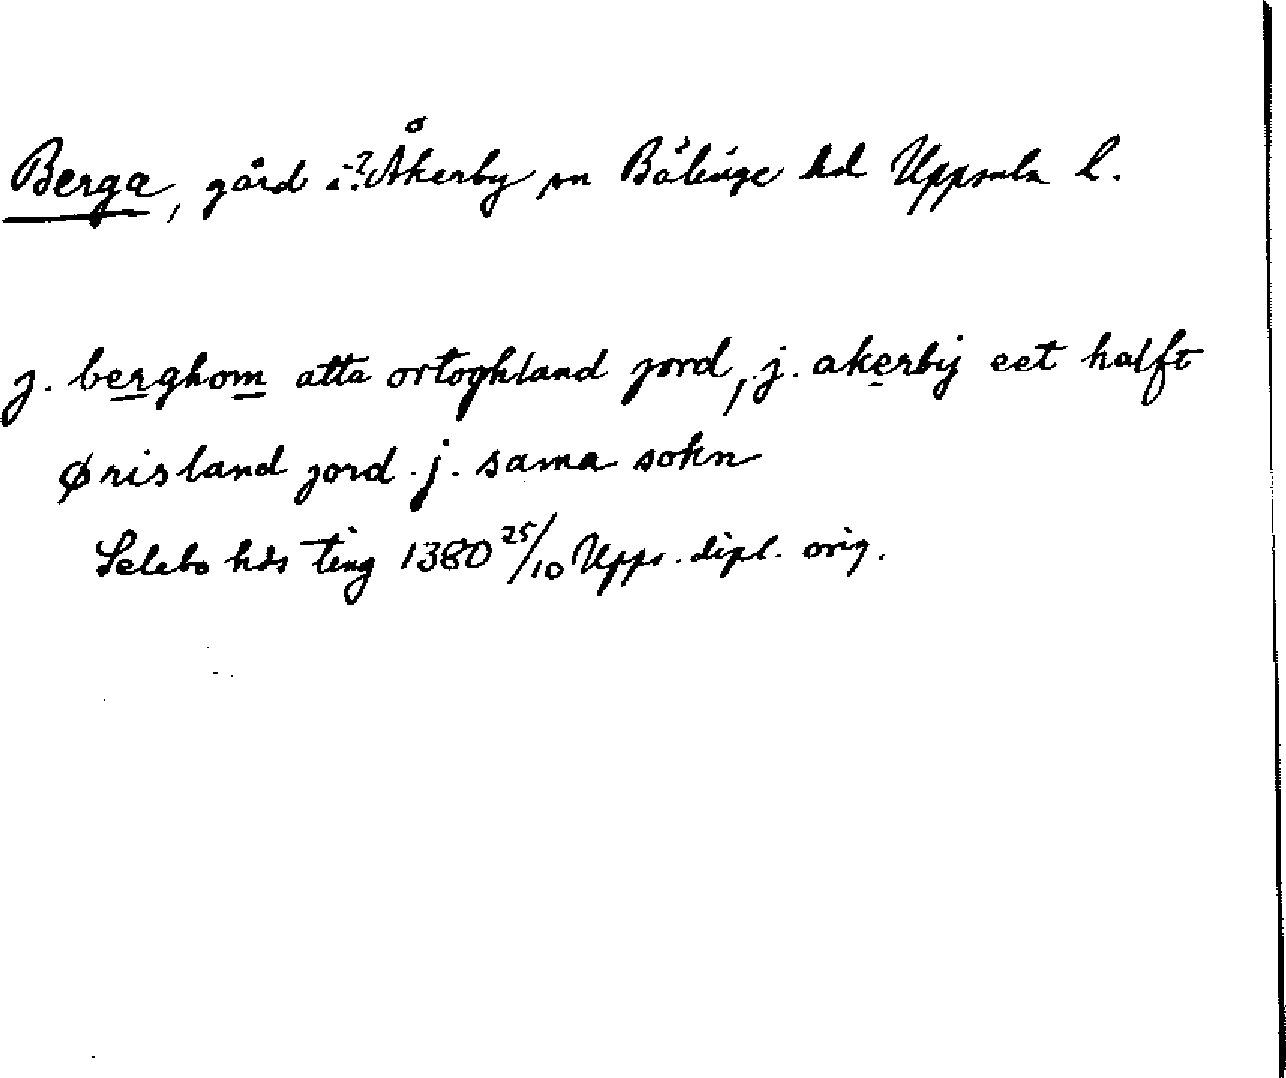 Berga, gård i? Åkerby sn Bälinge hd Uppsala l.
j. berghom atta ortoghland jord, j. akerbij eet halft
ørisland jord. j. sama sokn
Selebo hds ting 1380 25/10 Upps. dipl. orig.